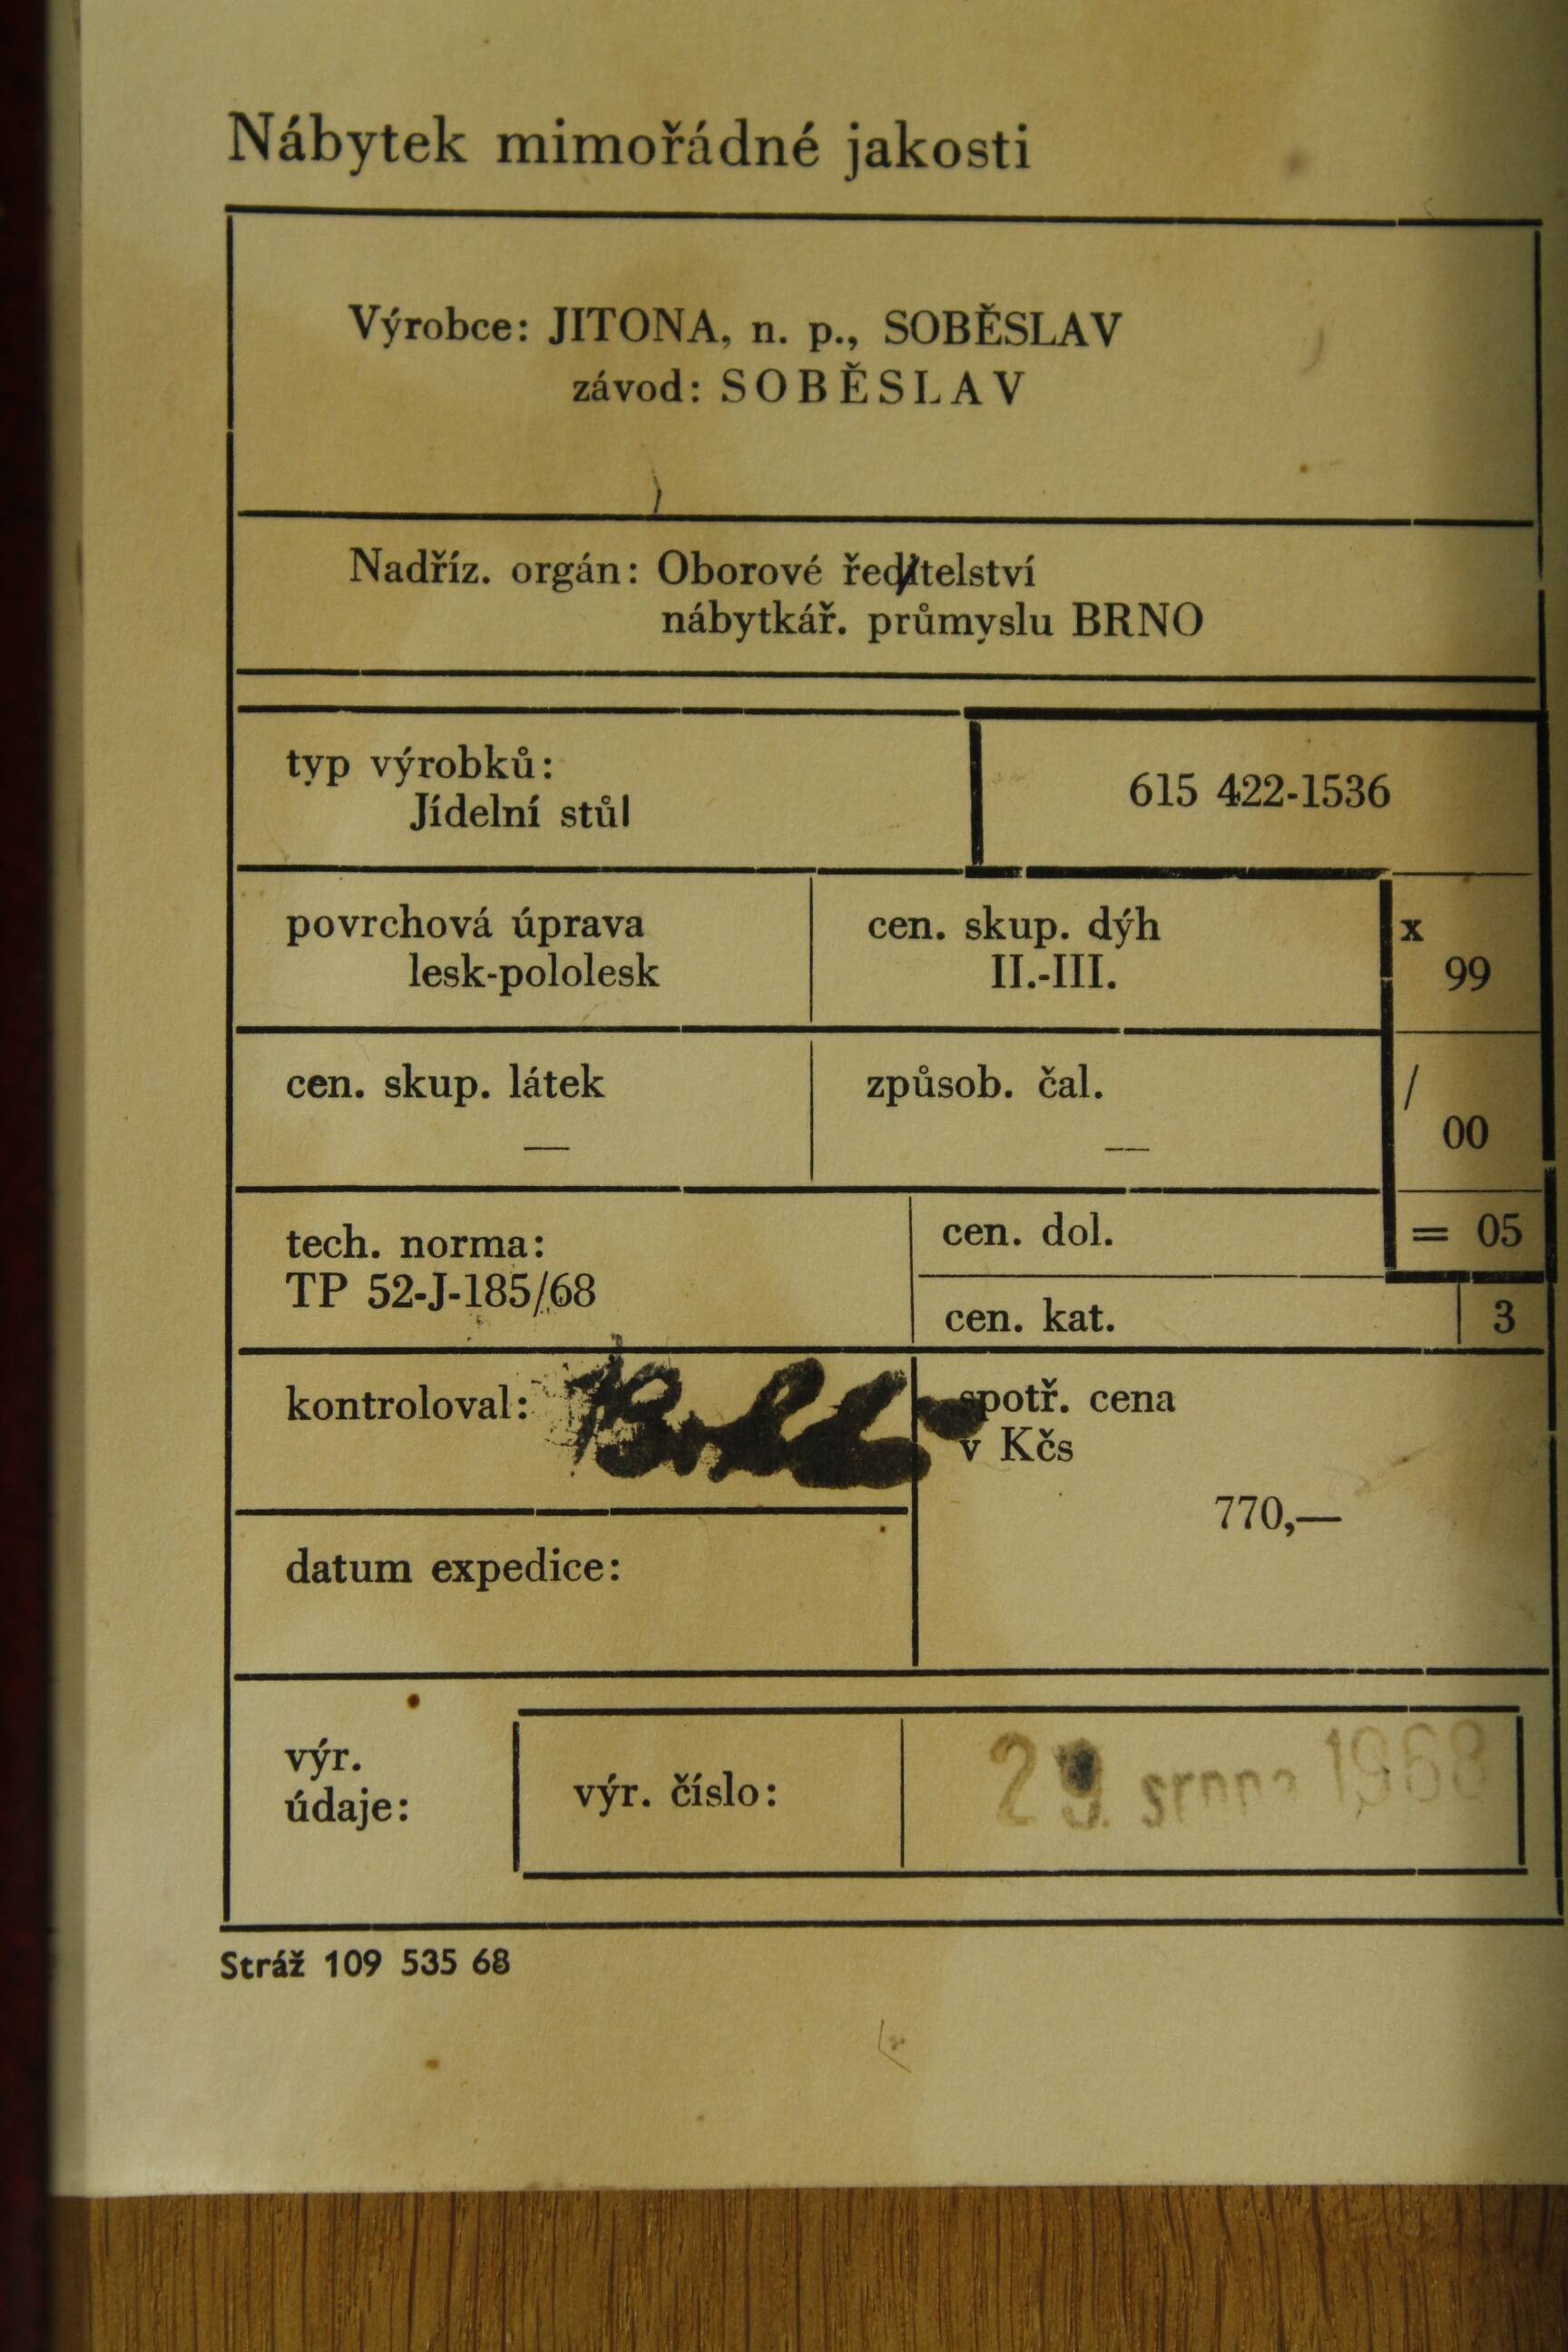 Nábytek mimořádné jakosti
Výrobce: JITONA, n. p., SOBĚSLAV
závod: SOBĚSLAV
Nadříz. orgán: Oborové ředitelství
nábytkář. průmyslu BRNO
typ výrobků:
Jídelní stůl
615 422-1536
povrchová úprava
lesk-pololesk
cen. skup. dýh
II.-III.
x
99
cen. skup. látek
—
způsob. čal.
—
/
00
tech. norma:
TP 52-J-185/68
cen. dol.
= 05
cen. kat.
3
kontroloval:
spotř. cena
v Kčs
770,—
datum expedice:
výr.
údaje:
výr. číslo:
29. srpna 1968
Stráž 109 535 68